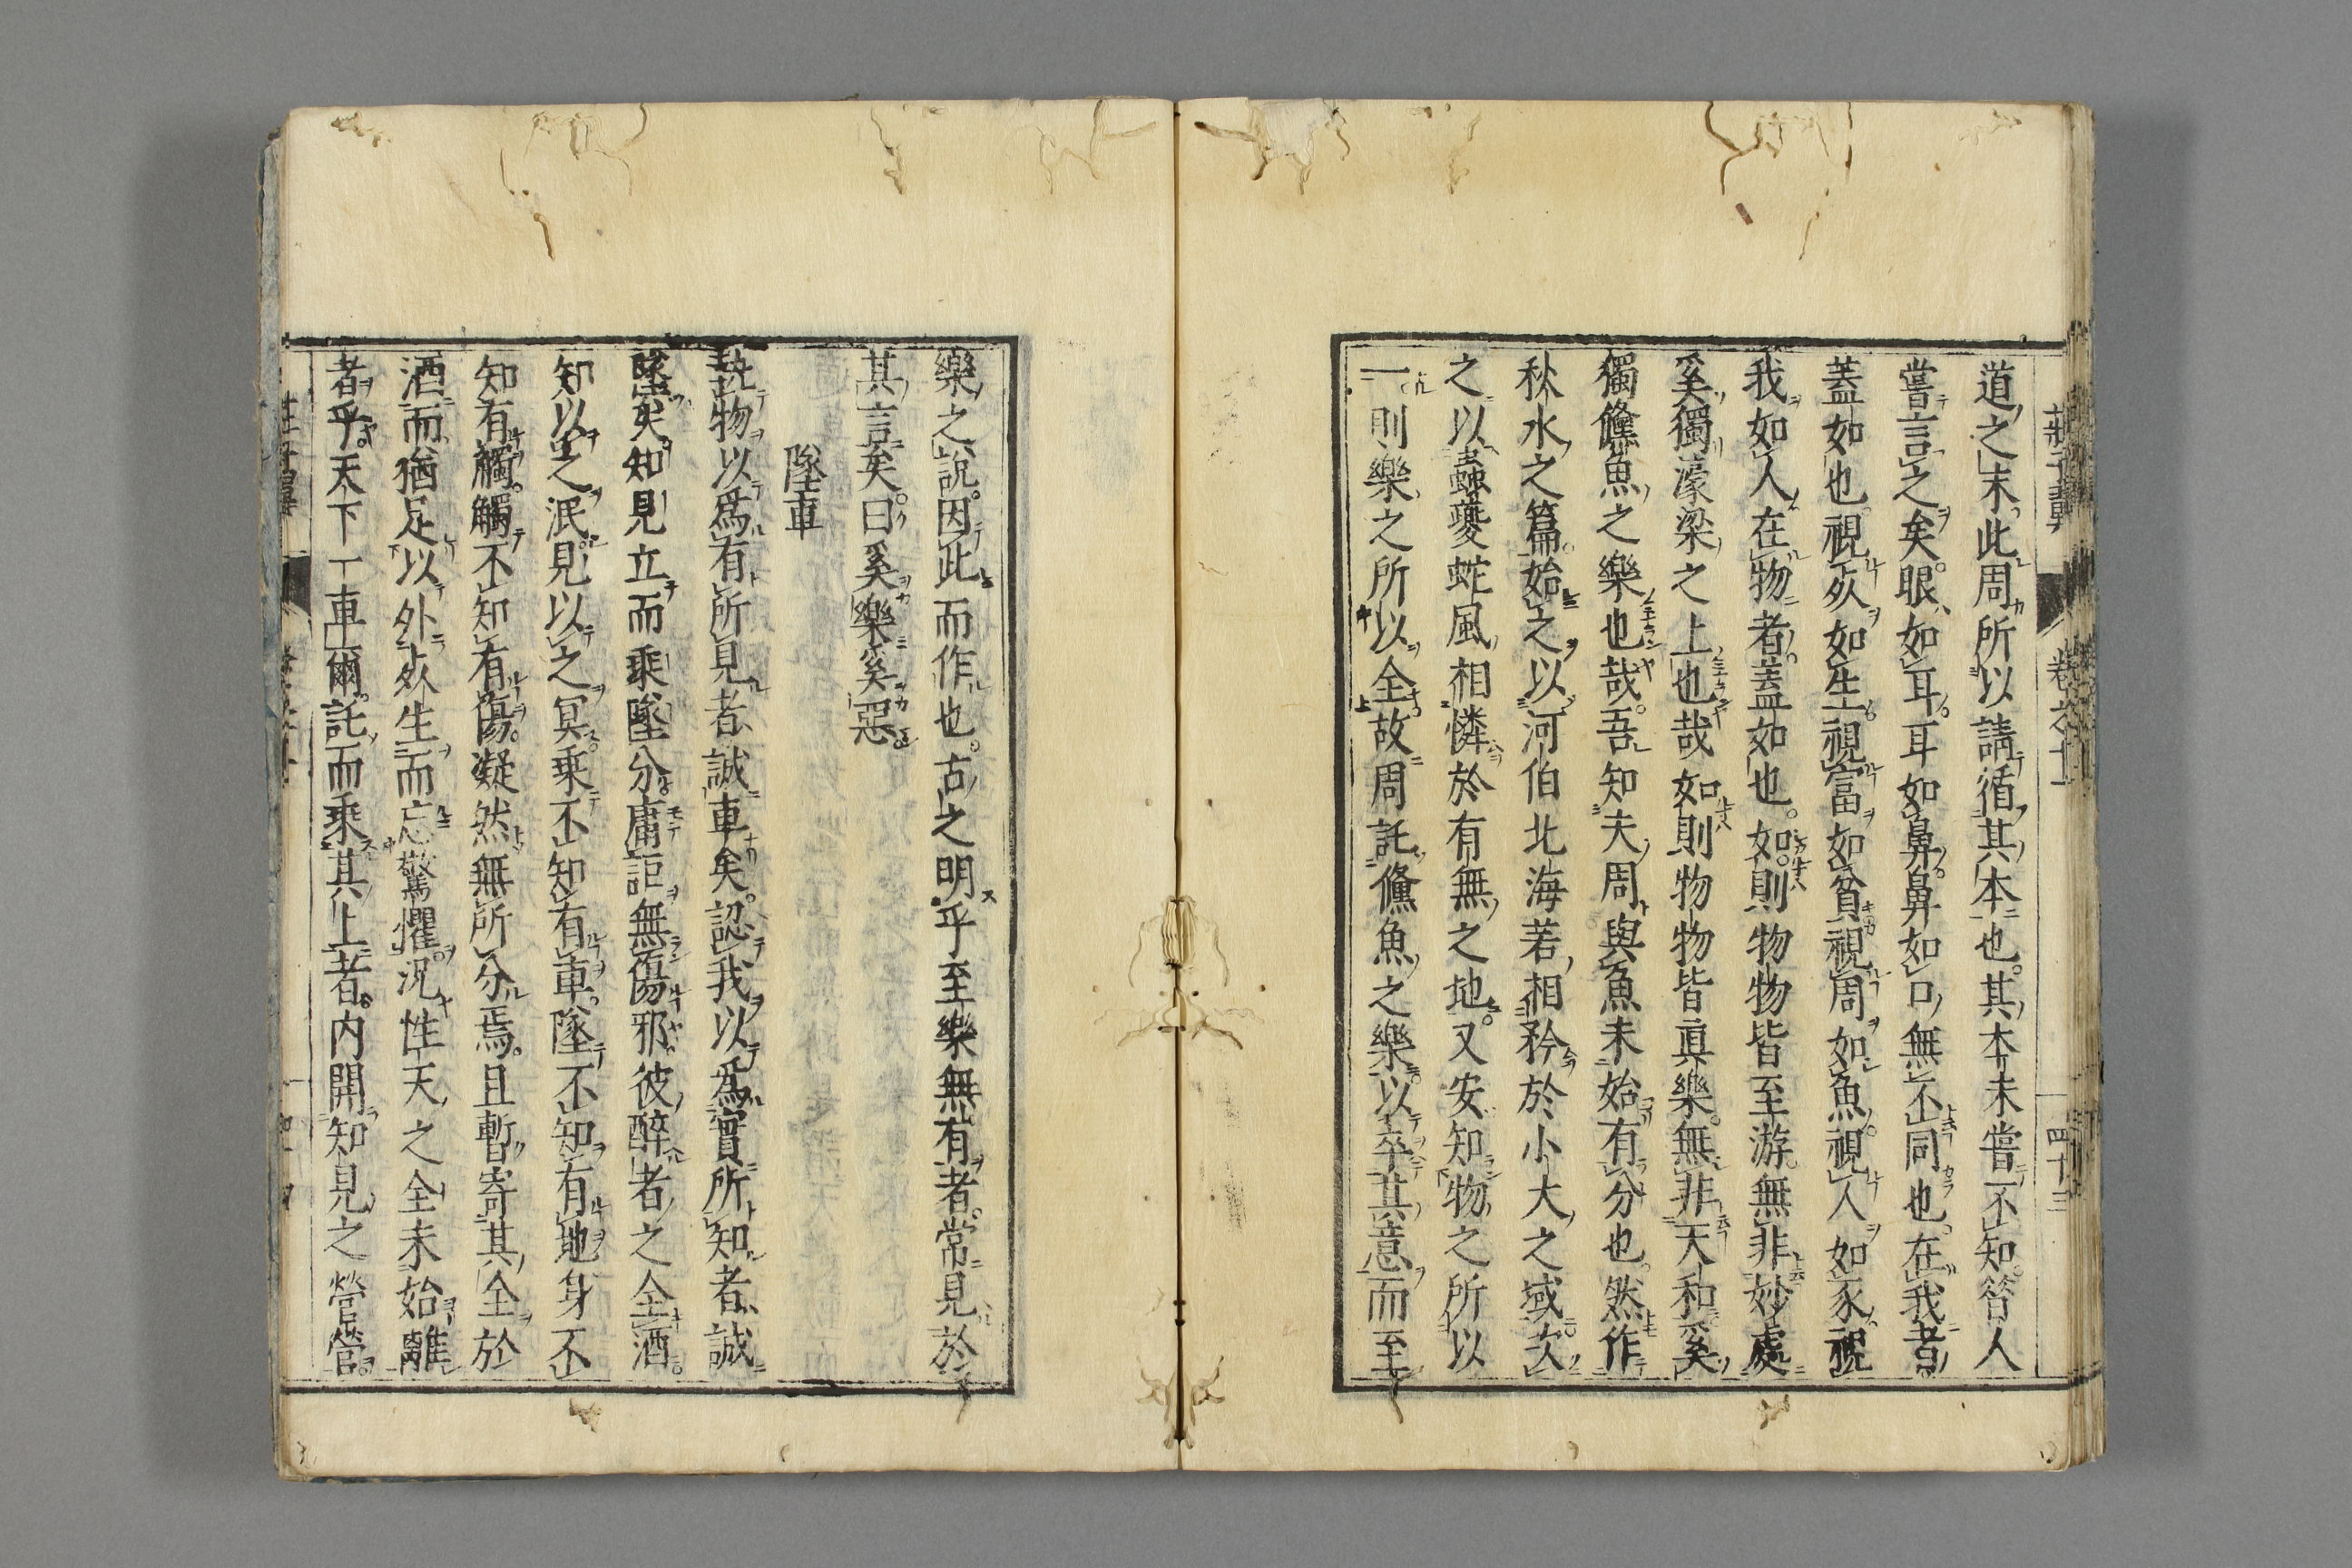 莊子翼 卷之十一 四十三
道之末此周所以請循其本也其本未嘗不知答人
嘗言之矣眼如耳耳如鼻鼻如口無不同也在我者
蓋如也視死如生視富如貧視周如魚視人如豕視
我如人在物者蓋如也如則物物皆至游無非妙處
奚獨濠梁之上也哉如則物物皆真樂無非天和奚
獨鯈魚之樂也哉吾知夫周與魚未始有分也然作
秋水之篇始之以河伯北海若相矜於小大之域次
之以蚿夔蛇風相憐於有無之地又安知物之所以
一則樂之所以全故周託鯈魚之樂以卒其意而至
樂之說因此而作也古之明乎至樂無有者常見於
其言矣曰奚樂奚惡
墜車
執物以為有所見者誠車矣認我以為實所知者誠
墜矣知見立而乘墜分庸詎無傷邪彼醉者之全酒
知以之泯見以之冥乘不知有車墜不知有地身不
知有觸觸不知有傷凝然無所分焉且暫寄其全於
酒而猶足以外死生而忘驚懼況性天之全未始離
者乎天下一車爾託而乘其上者內開知見之營營